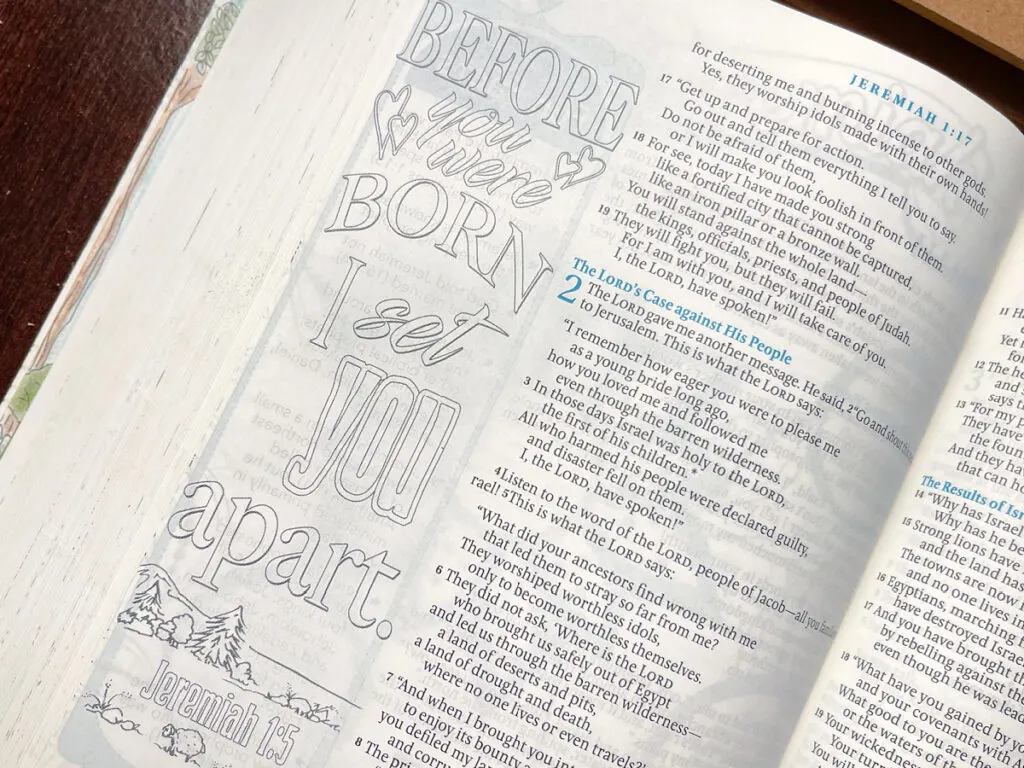 BEFORE
you
were
BORN
I set
YOU
apart.
Jeremiah 1:5
JEREMIAH 1:17
for deserting me and burning incense to other gods.
Yes, they worship idols made with their own hands!
17 “Get up and prepare for action.
Go out and tell them everything I tell you to say.
Do not be afraid of them,
or I will make you look foolish in front of them.
18 For see, today I have made you strong
like a fortified city that cannot be captured,
like an iron pillar or a bronze wall.
You will stand against the whole land—
the kings, officials, priests, and people of Judah.
19 They will fight you, but they will fail.
For I am with you, and I will take care of you.
I, the LORD, have spoken!”
The LORD’s Case against His People
2 The LORD gave me another message. He said, 2 “Go and shout this
to Jerusalem. This is what the LORD says:
“I remember how eager you were to please me
as a young bride long ago,
how you loved me and followed me
even through the barren wilderness.
3 In those days Israel was holy to the LORD,
the first of his children.*
All who harmed his people were declared guilty,
and disaster fell on them.
I, the LORD, have spoken!”
4 Listen to the word of the LORD, people of Jacob—all you
rael! 5 This is what the LORD says:
“What did your ancestors find wrong with me
that led them to stray so far from me?
They worshiped worthless idols,
only to become worthless themselves.
6 They did not ask, ‘Where is the LORD
who brought us safely out of Egypt
and led us through the barren wilderness—
a land of deserts and pits,
a land of drought and death,
where no one lives or even travels?’
7 “And when I brought you
to enjoy its bounty
you defiled my
and
8 The
11
Yet
for
12 The
says
13 “For my
They have
the
And they
that can
The Results of
14 “Why has Israel
Why has he
15 Strong lions have
and the land has
The towns are now
and no one lives
16 Egyptians, marching
have destroyed
17 And you have brought
by rebelling against
even though he was
18 “What have you gained by
and your covenants with
What good to you are the
or the waters of
19 Your wickedness
Your
You will